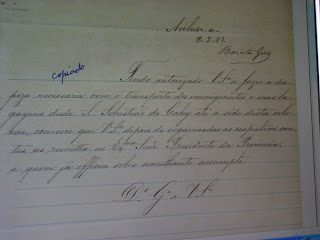 Archive-se
9-2-83.
Barata Góes
copiado
Tendo autorizado V.Sª a fazer a des-
peza necessaria com o transporte dos immigrantes e suas ba-
gagens desde S. Sebastião do Cahy até a séde desta colo-
nia, convem que V.Sª depois de organisadas as respectivas con-
tas, as remetta ao Exmo Snr. Presidente da Provincia
a quem já officiei sobre semelhante assumpto.
Ds. Ge. a V.Sª